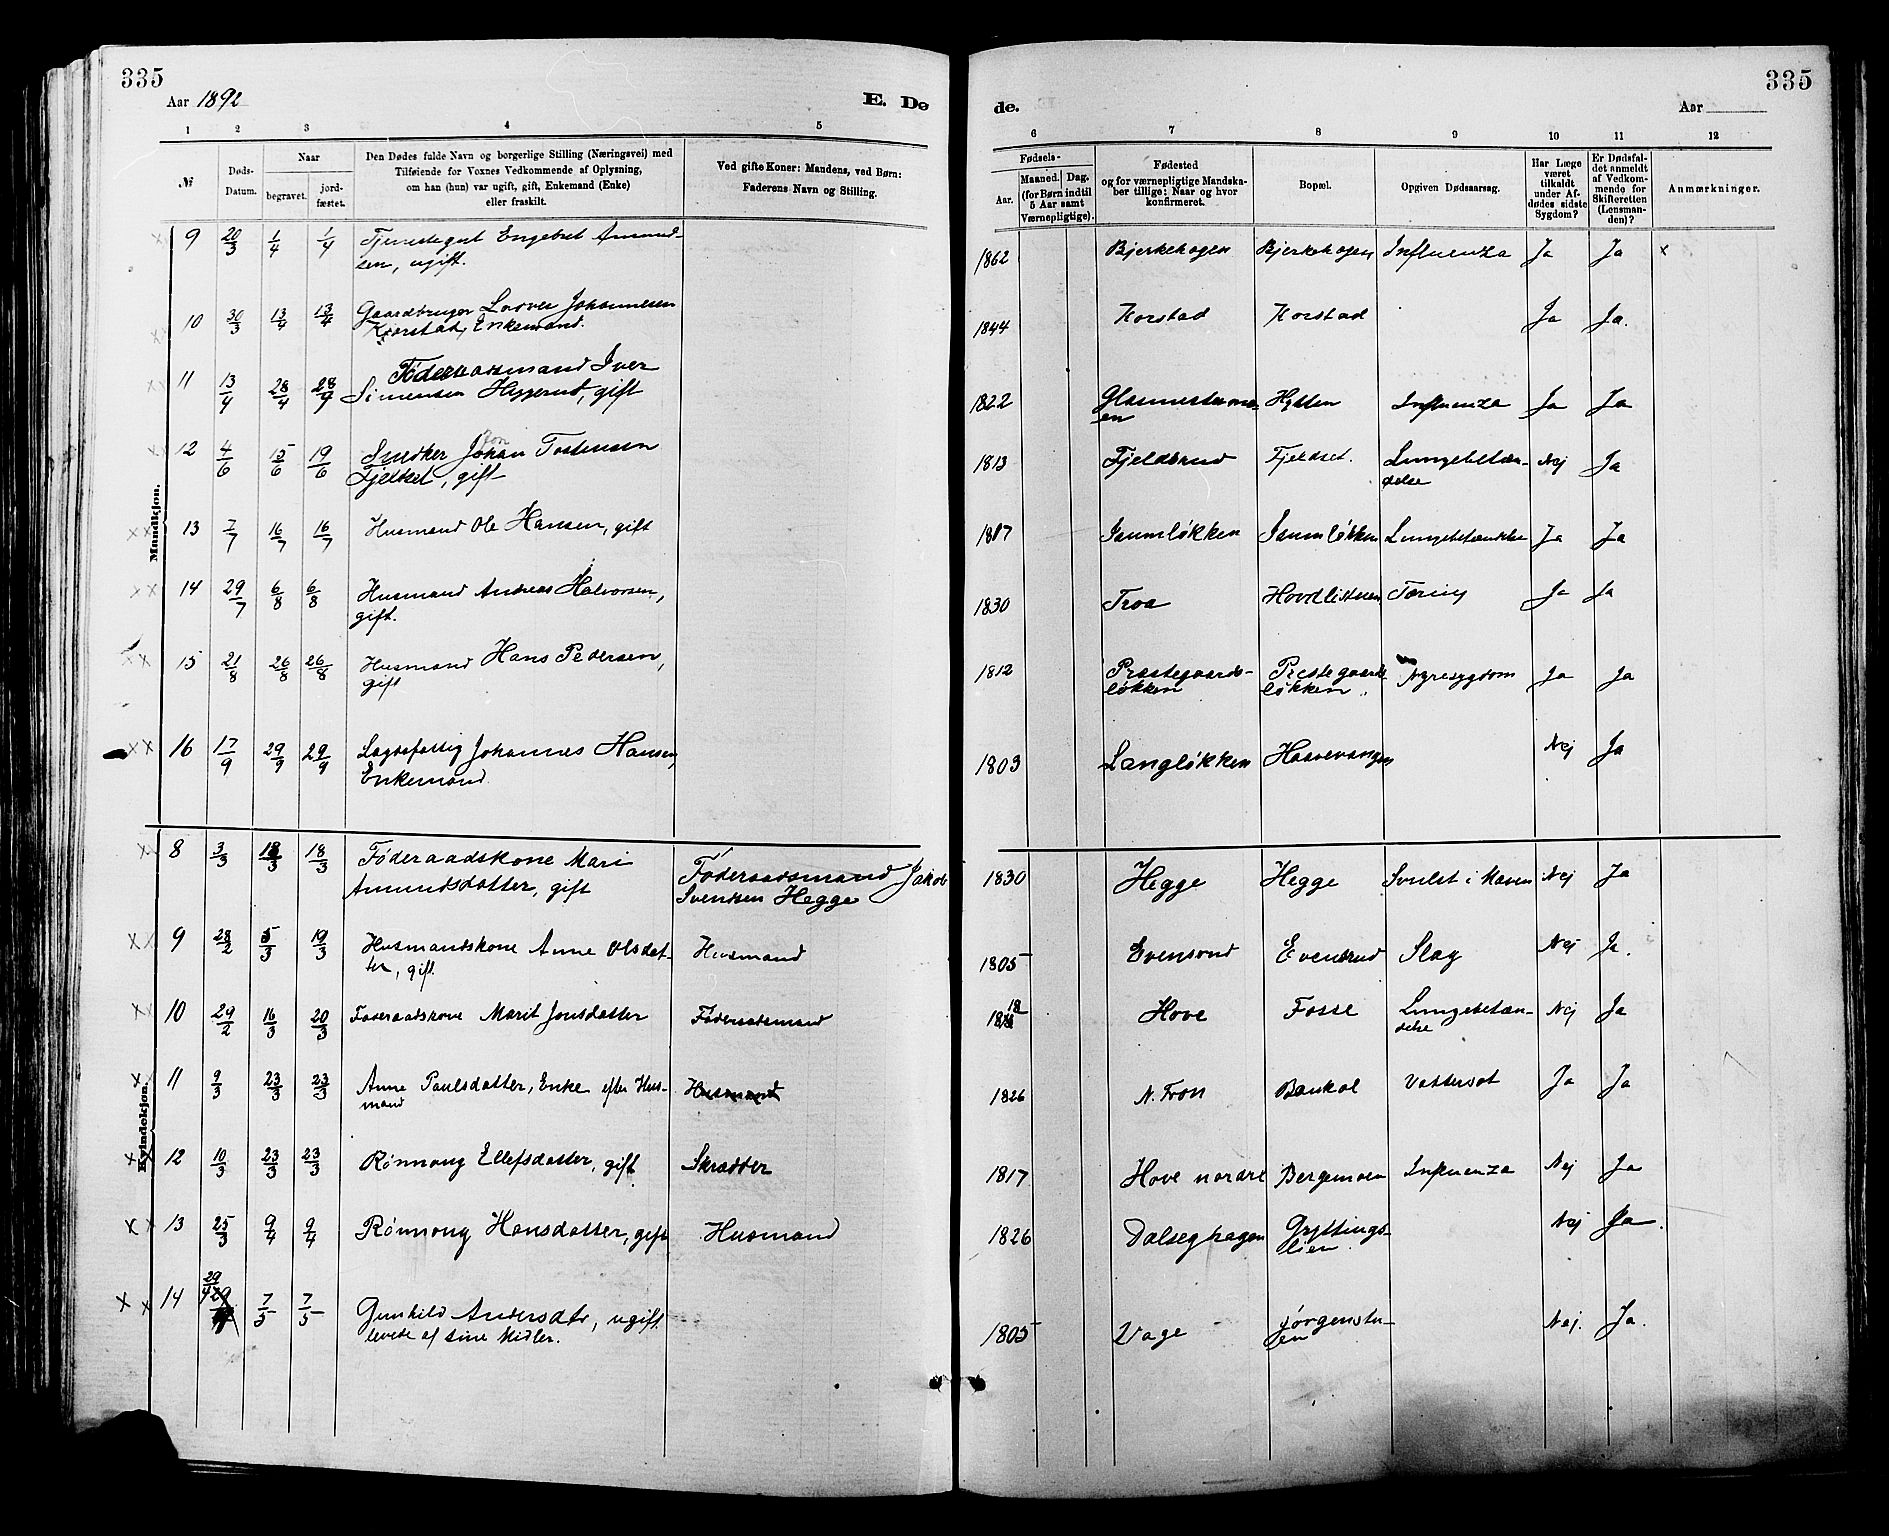 335
335
Aar 1892
E. Dø
de.
Aar
1 2 3 4 5
6 7 8 9 10 11 12
№
Døds-
Datum.
Naar
begravet.
jord-
fæstet.
Den Dødes fulde Navn og borgerlige Stilling (Næringsvei) med
Tilføiende for Voxnes Vedkommende af Oplysning,
om han (hun) var ugift, gift, Enkemand (Enke)
eller fraskilt.
Ved gifte Koner: Mandens, ved Børn:
Faderens Navn og Stilling.
Fødsels-
Aar.
Maaned. Dag.
(for Børn indtil
5 Aar samt
Værnepligtige).
Fødested
og for værnepligtige Mandska-
ber tillige: Naar og hvor
konfirmeret.
Bopæl.
Opgiven Dødsaarsag.
Har Læge
været
tilkaldt
under Af-
dødes sidste
Sygdom?
Er Dødsfal-
det anmeldt
af Vedkom-
mende for
Skifteretten
(Lensman-
den)?
Anmærkninger.
Mandkjøn.
9 20/3 1/4 1/4 Tjenestegut Engebret Amund-
sen, ugift.
1862 Bjerkehagen Bjerkehagen Influenza Ja Ja x
10 30/3 13/4 13/4 Gaardbruger Johannesen
Korstad, Enkemand.
1844 Korstad Korstad Ja Ja.
11 13/4 28/4 28/4 Føderaadsmand Iver
Simensen Heggerud, gift
1822 Hytten Influenza Ja Ja
12 4/6 15/6 19/6 Snedker Johan Tostensen
Fjeldset, gift
1813 Fjeldsrud Fjeldset. Lungebetæn-
delse Nej Ja
13 7/7 16/7 16/7 Husmand Ole Hansen, gift
1817 Isumløkken Isumløkken Lungebetændelse Ja Ja
14 29/7 6/8 6/8 Husmand Andreas Halvorsen,
gift.
1830 Troa Tæring Ja Ja
15 21/8 26/8 26/8 Husmand Hans Pedersen,
gift
1812 Præstegaards-
løkken Præstegaards
løkken Nyresygdom Ja Ja
16 17/9 29/9 29/9 Lægdsfattig Johannes Hansen,
Enkemand.
1803 Langløkken Haavevangen Nej Ja
Kvindekjøn.
8 3/3 18/3 18/3 Føderaadskone Mari
Amundsdatter, gift
Føderaadsmand Jakob
Svendsen Hegge
1830 Hegge Hegge Svulst i Maven Nej Ja
9 28/2 5/3 19/3 Husmandskone Anne Olsdat-
ter, gift.
Husmand
1805 Evensrud Evensrud Slag Nej Ja.
10 29/2 16/3 20/3 Føderaadskone Marit Jonsdatter Føderaadsmand
1818 Hove Fosse Lungebetæn-
delse Nej Ja
11 9/3 23/3 23/3 Anne Paulsdatter, Enke efter Hus-
mand
Husmand
1826 N. Fron Baukol Vattersot Ja Ja
12 10/3 23/3 23/3 Rønnoug Ellefsdatter, gift Skrædder
1817 Hove nordre Bergemoen Influenza Nej Ja
13 25/3 9/4 9/4 Rønnoug Hansdatter, gift Husmand
1826 Dalseghagen Gryttings-
lien. Nej Ja.
14 29/4 7/5 7/5 Gunhild Andersdtr, ugift.
levede af sine Midler.
1805 Vage Jørgenstu-
en Nej. Ja.